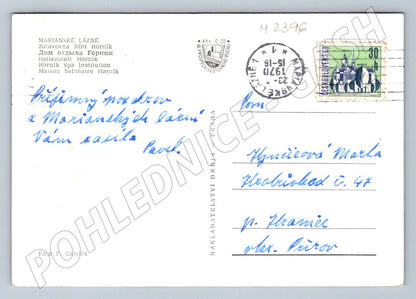 MARIÁNSKÉ LÁZNĚ
Zotavovna ROH Horník
Дом отдыха Горник
Heilanstalt Horník
Horník Spa Institution
Maison balnéaire Horník
M 2396
MARIÁNSKÉ LÁZNĚ 1
1970
15-16
* 1 *
30
ČESKOSLOVENSKO
Příjemný pozdrav
z Mariánských lázní
Vám zasílá
Pavel.
Pom.
Marta
č. 47
p. Hranice
okr. Přerov
NAKLADATELSTVÍ ORBIS - PRAHA
Foto
POHLEDNICE-CASH